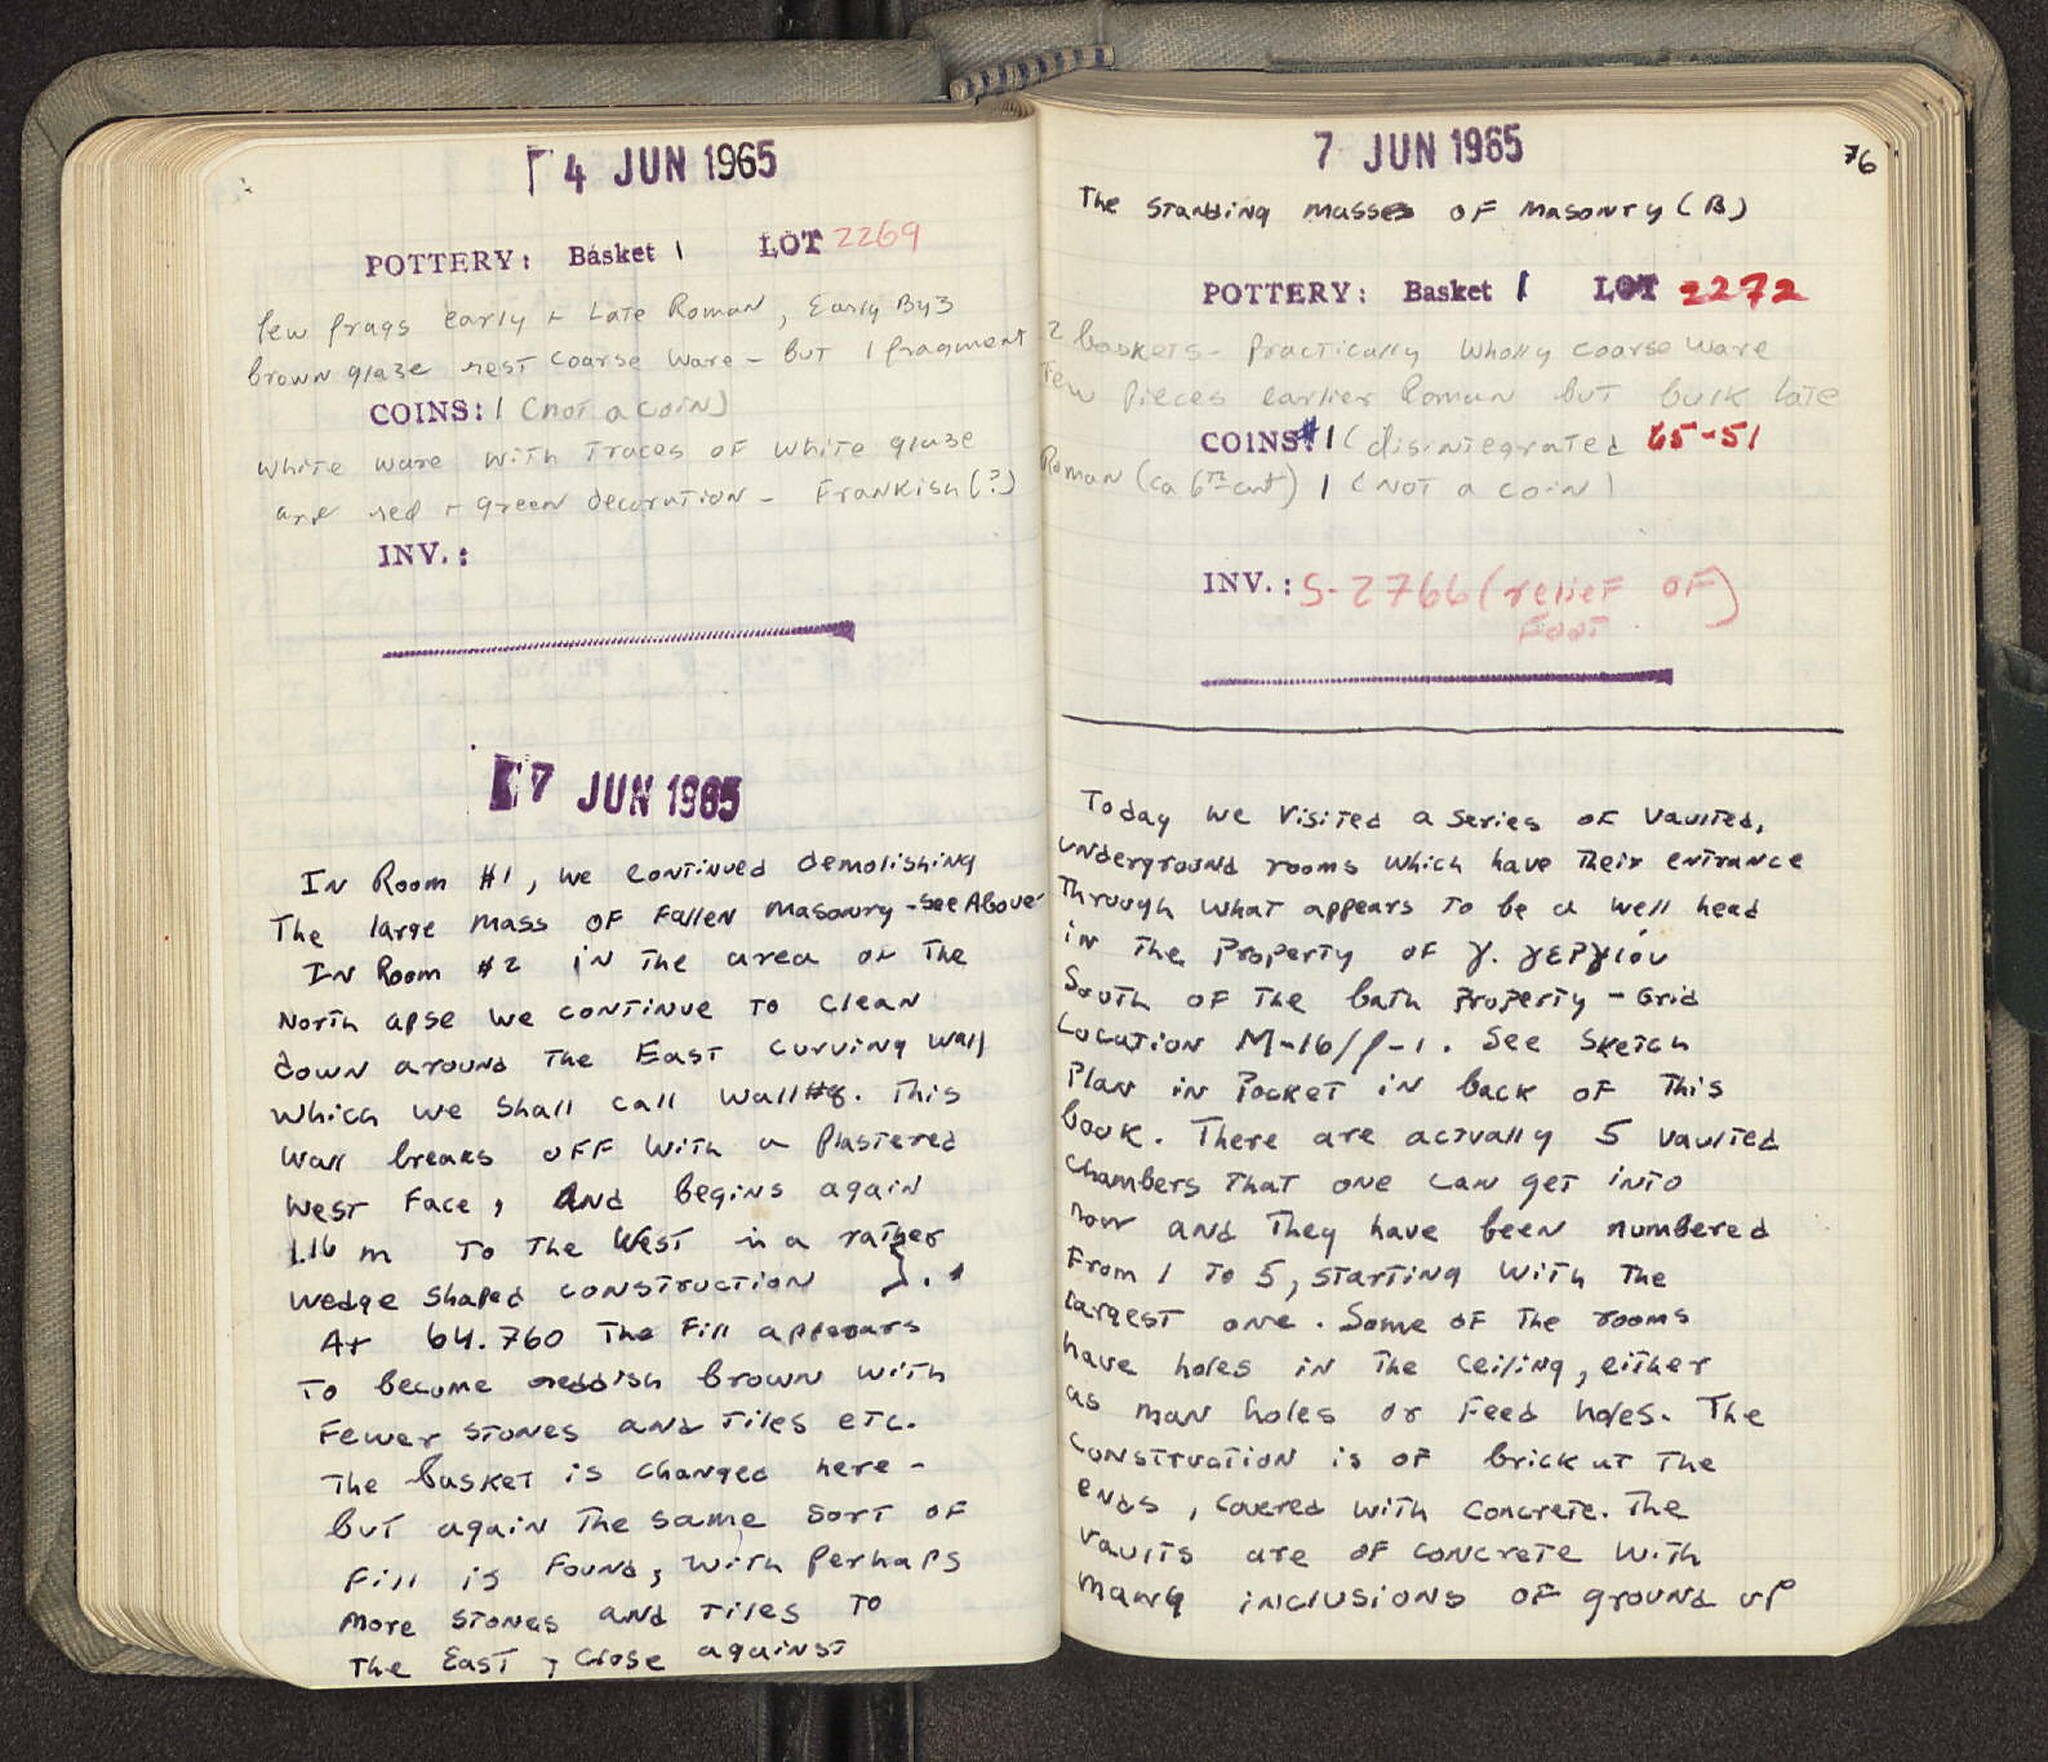 4 JUN 1965
POTTERY: Basket 1 LOT 2269
few frags early + Late Roman, Early Byz
brown glaze rest coarse ware - but 1 fragment
COINS: 1 (not a coin)
white ware with traces of white glaze
and red + green decoration - Frankish (?)
INV.:
7 JUN 1965
In Room #1, we continued demolishing
The large mass of fallen masonry - see Above
In Room #2 in the area of the
North apse we continue to clean
down around the East curving wall
which we shall call wall #8. This
wall breaks off with a plastered
West face, And begins again
1.16 m to the West in a rather
wedge shaped construction } . .
At 64.760 the fill appears
to become reddish brown with
fewer stones and tiles etc.
The basket is changed here -
but again the same sort of
fill is found, with perhaps
more stones and tiles to
the East, close against
7 JUN 1965
76
The standing masses of masonry (B)
POTTERY: Basket 1 LOT 2272
2 baskets - Practically wholly coarse ware
Few pieces earlier Roman but bulk late
COINS: #1 (disintegrated 65-51
Roman (ca 6th cent) 1 (not a coin)
INV.: S-2766 (relief of)
foot
Today we visited a series of vaulted,
underground rooms which have their entrance
through what appears to be a well head
in the Property of γ. γεργίου
South of the bath property - Grid
Location M-16/ρ-1. See sketch
Plan in Pocket in back of this
book. There are actually 5 vaulted
chambers that one can get into
now and they have been numbered
from 1 to 5, starting with the
largest one. Some of the rooms
have holes in the ceiling, either
as man holes or feed holes. The
construction is of brick at the
ends, covered with concrete. The
vaults are of concrete with
many inclusions of ground up